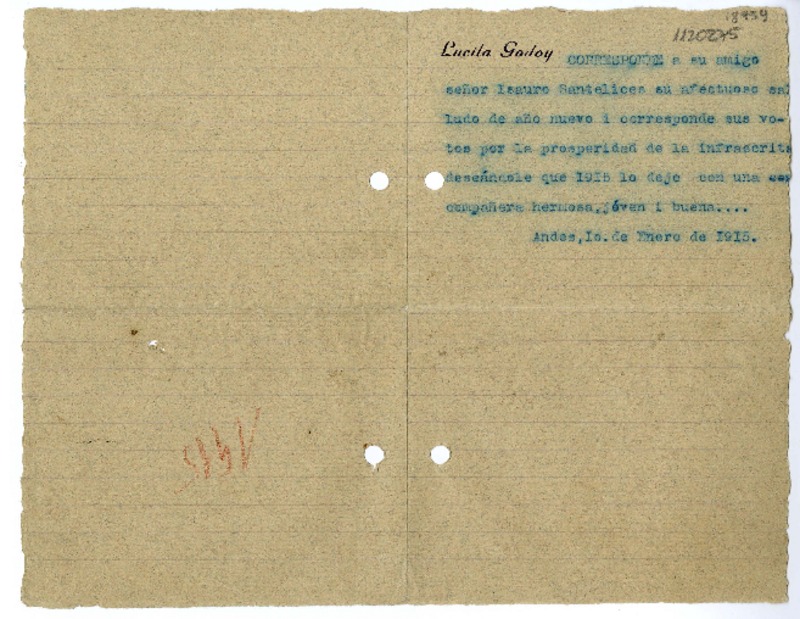 18959
1120275
Lucila Godoy CORRESPONDE a su amigo
señor Isauro Santelices su afectuoso sa
ludo de año nuevo i corresponde sus vo-
tos por la prosperidad de la infrascrita
deseándole que 1915 lo deje con una
compañera hermosa, jóven i buena....
Andes, 1o. de Enero de 1915.
1915